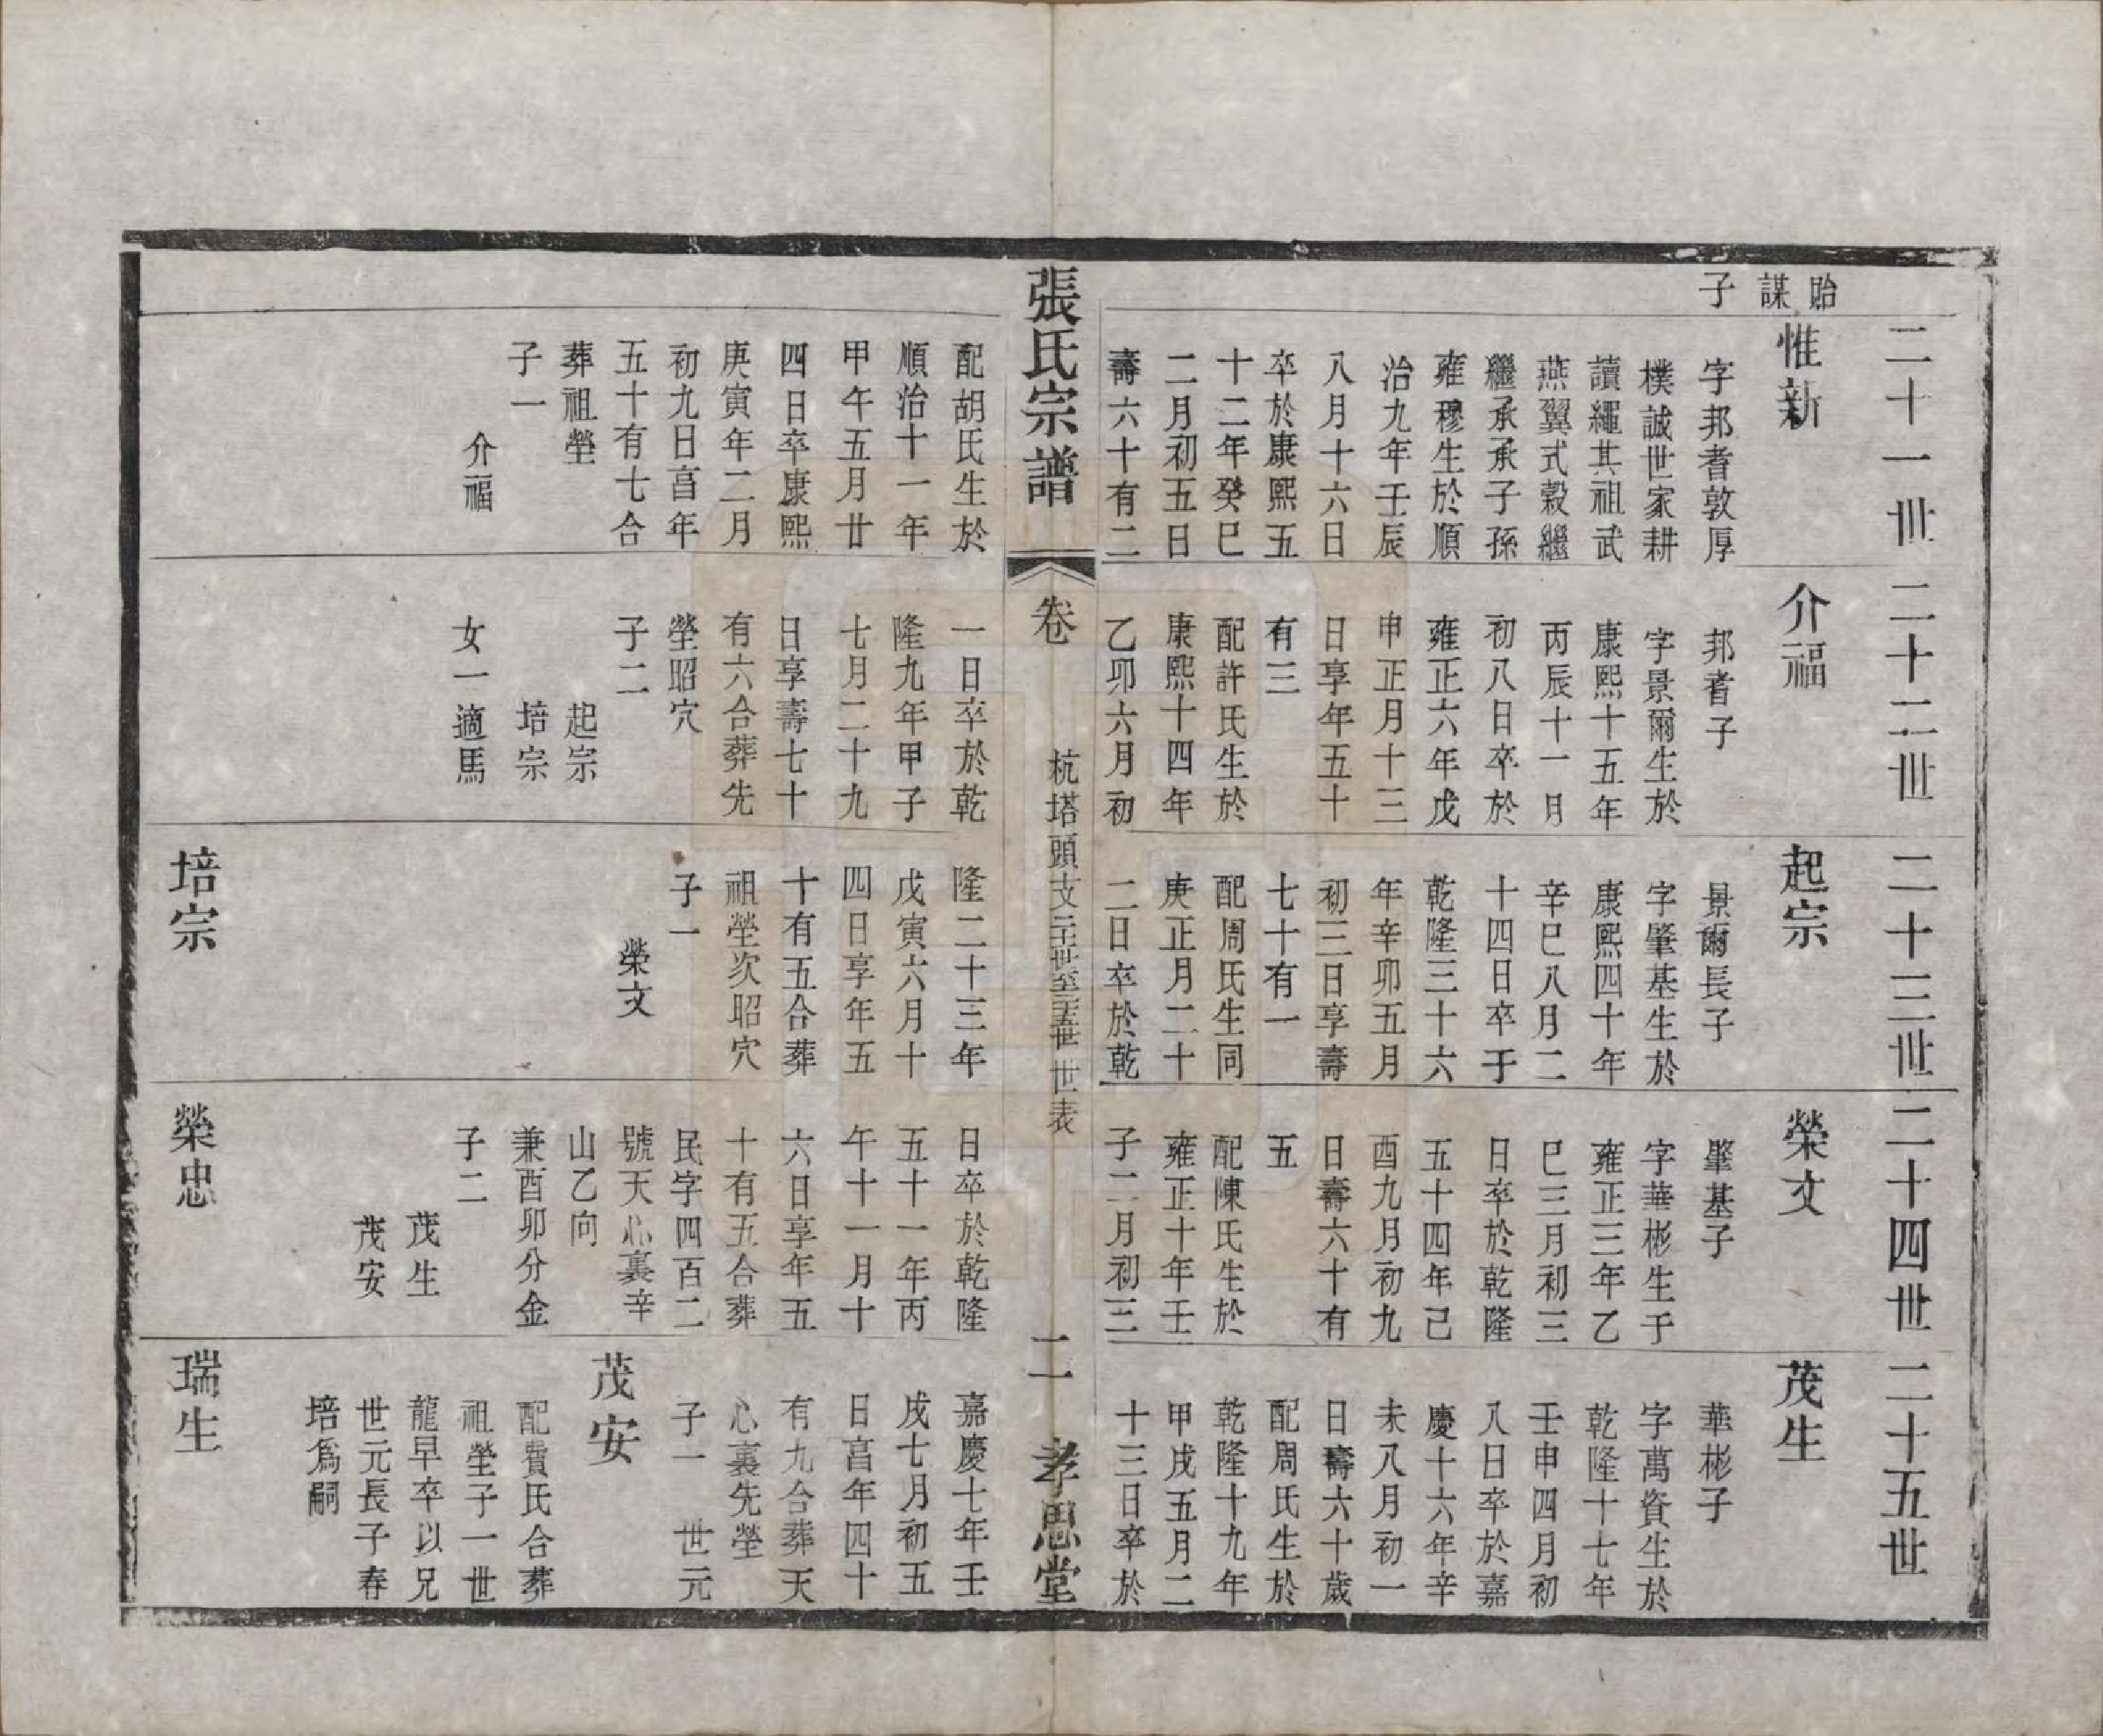 貽謀子
二十一世
惟新
字邦耆敦厚
樸誠世家耕
讀繩其祖武
燕翼式榖繼
繼承承子孫
雍穆生於順
治九年壬辰
八月十六日
卒於康熙五
十二年癸巳
二月初五日
壽六十有二
配胡氏生於
順治十一年
甲午五月廿
四日卒康熙
庚寅年二月
初九日亯年
五十有七合
葬祖塋
子一
介福
二十二世
介福
邦耆子
字景爾生於
康熙十五年
丙辰十一月
初八日卒於
雍正六年戊
申正月十三
日享年五十
有三
配許氏生於
康熙十四年
乙卯六月初
一日卒於乾
隆九年甲子
七月二十九
日享壽七十
有六合葬先
塋昭穴
子二
起宗
培宗
女一適馬
二十三世
起宗
景爾長子
字肇基生於
康熙四十年
辛巳八月二
十四日卒于
乾隆三十六
年辛卯五月
初三日享壽
七十有一
配周氏生同
庚正月二十
二日卒於乾
隆二十三年
戊寅六月十
四日享年五
十有五合葬
祖塋次昭穴
子一
榮文
培宗
二十四世
榮文
肇基子
字華彬生于
雍正三年乙
巳三月初三
日卒於乾隆
五十四年己
酉九月初九
日壽六十有
五
配陳氏生於
雍正十年壬
子二月初三
日卒於乾隆
五十一年丙
午十一月十
六日享年五
十有五合葬
民字四百二
號天心裏辛
山乙向
兼酉卯分金
子二
茂生
茂安
榮忠
二十五世
茂生
華彬子
字萬資生於
乾隆十七年
壬申四月初
八日卒於嘉
慶十六年辛
未八月初一
日壽六十歲
配周氏生於
乾隆十九年
甲戌五月二
十三日卒於
嘉慶七年壬
戌七月初五
日亯年四十
有九合葬天
心裏先塋
子一 世元
茂安
配費氏合葬
祖塋子一世
龍早卒以兄
世元長子春
培爲嗣
瑞生
張氏宗譜
卷
杭塔頭支二十一世至二十五世 世表
二
孝思堂